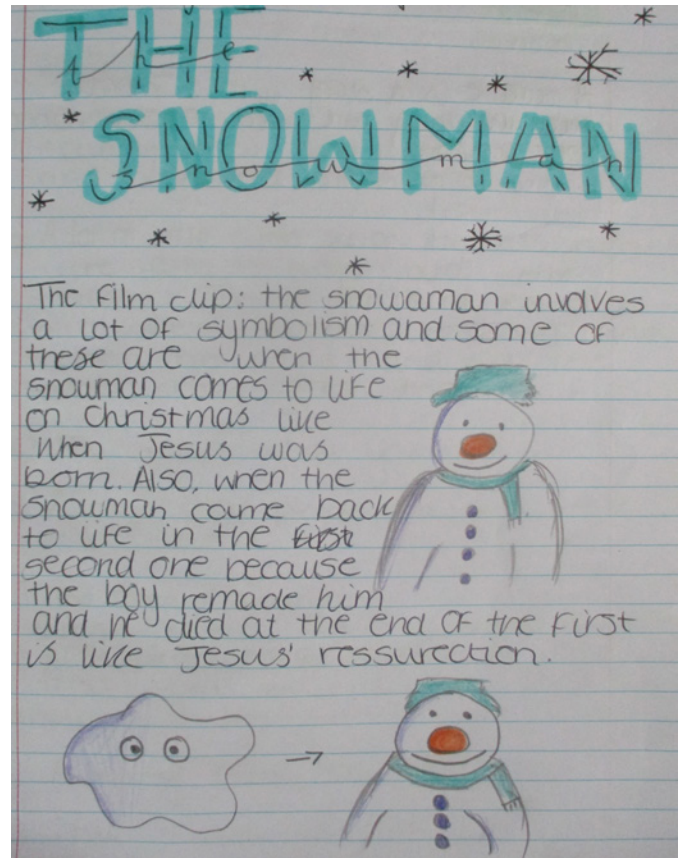 THE
the
SNOWMAN
snowman
The film clip: the snowaman involves
a lot of symbolism and some of
these are when the
snowman comes to life
on Christmas like
when Jesus was
born. Also, when the
snowman came back
to life in the first
second one because
the boy remade him
and he died at the end of the first
is like Jesus' ressurection.